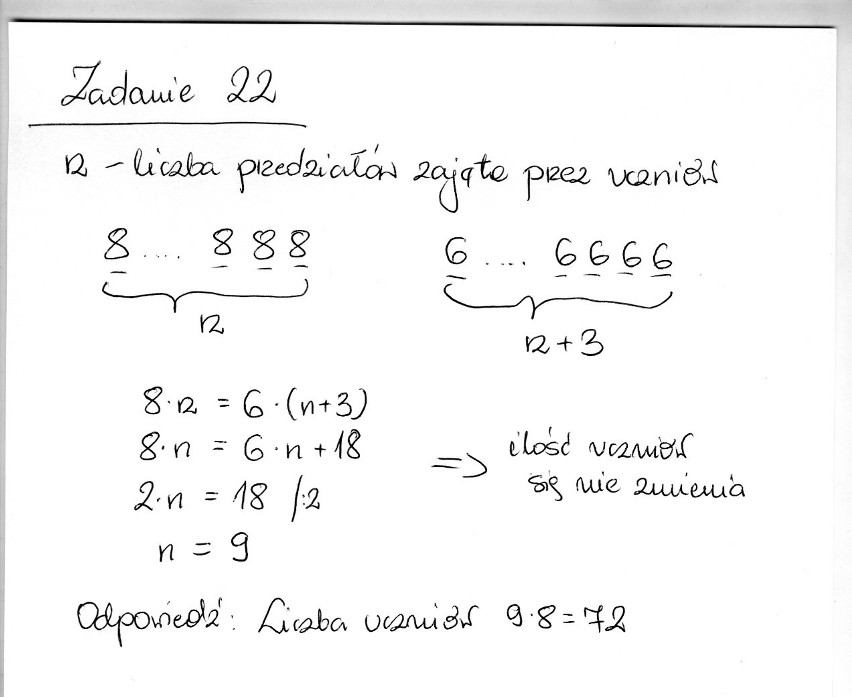 Zadanie 22
n - liczba przedziałów zajęte przez uczniów
8 .... 8 8 8
6 .... 6 6 6 6
n
n + 3
8·n = 6·(n+3)
8·n = 6·n + 18
2·n = 18 /:2
n = 9
=> ilość uczniów
się nie zmienia
Odpowiedź: Liczba uczniów 9·8=72